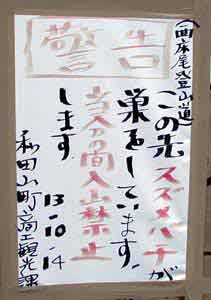 警告
(床尾登山道)
この先スズメバチが
巣をしています。
当分の間入山禁止
します
13-10-14
和田山町商工観光課